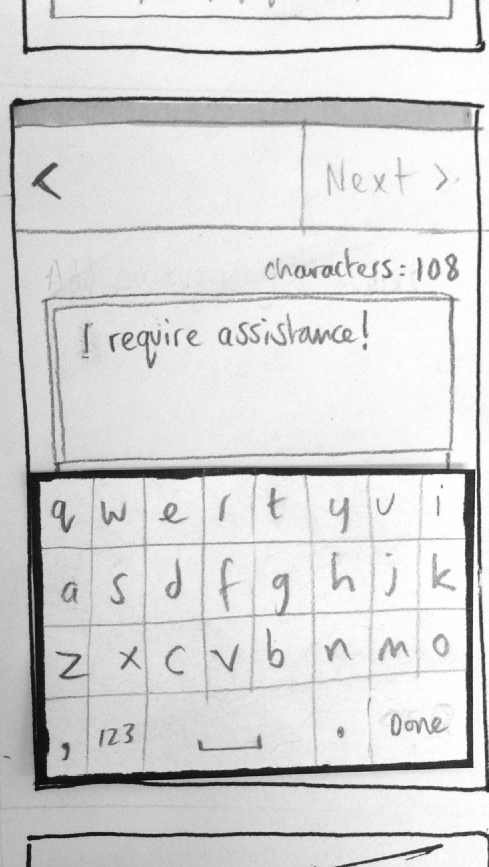 < Next >
characters: 108
I require assistance!
q w e r t y u i
a s d f g h j k
z x c v b n m o
, 123 . Done